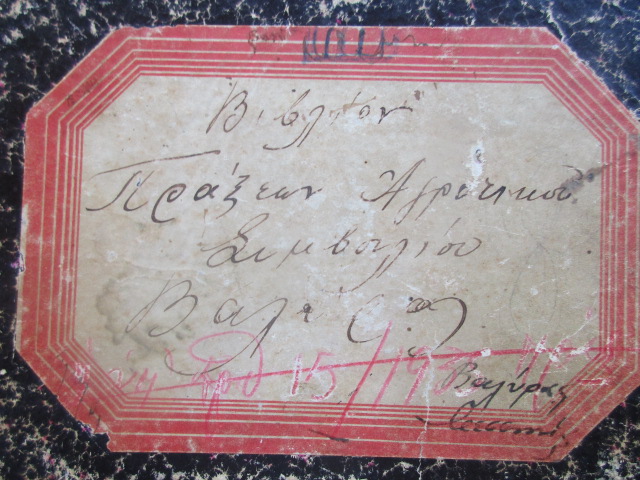 Βιβλίον
Πράξεων Αγροτικού
Συμβουλίου
Βαλύρας
15/193
Βαλύρας